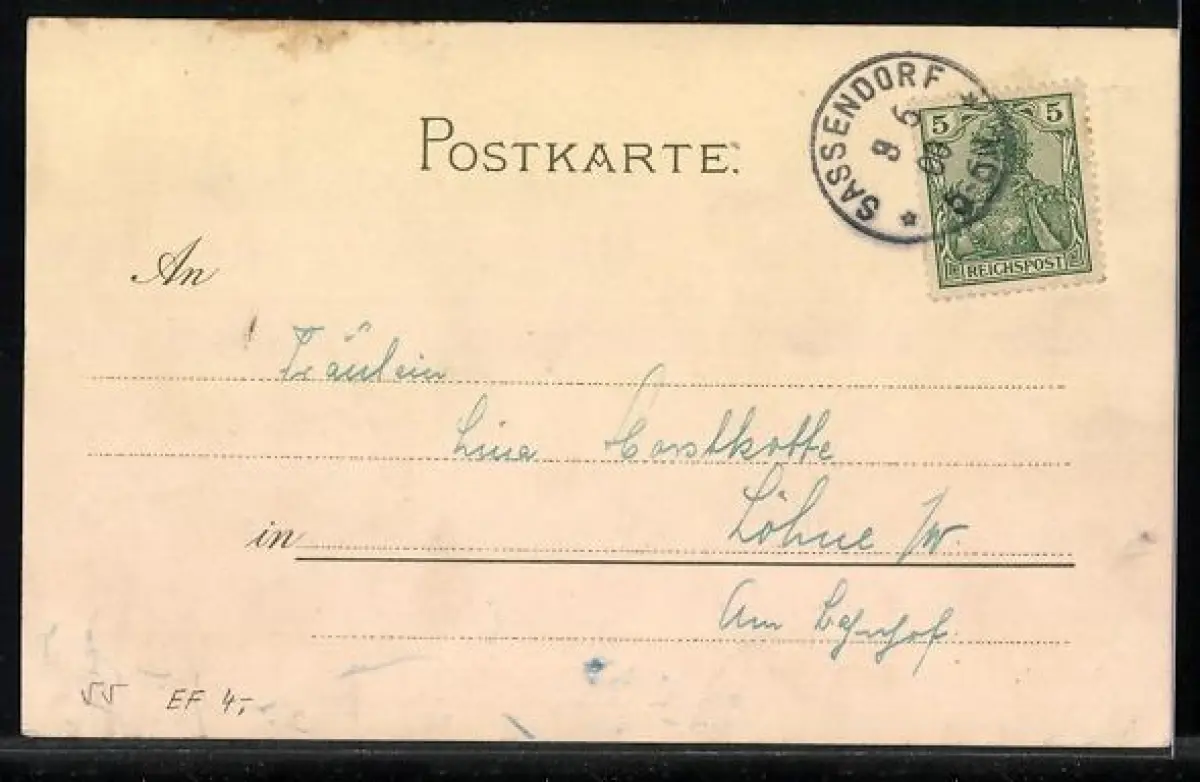 POSTKARTE.
SASSENDORF
5 5
REICHSPOST
An
Fräulein
Lina Horstkotte
in Löhne i/W.
Am Bahnhof.
EF 4,-